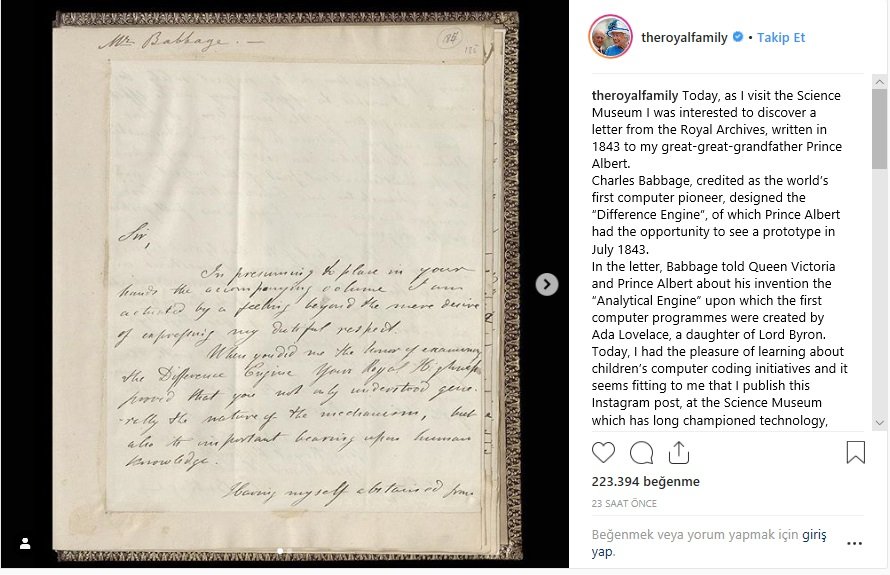 Mr. Babbage. —
Sir,
In presuming to place in your
hands the accompanying volume I am
actuated by a feeling beyond the mere desire
of expressing my dutiful respect
When you did me the honor of examining
the Difference Engine Your Royal Highness
proved that you not only understood gene-
rally the nature of the mechanism, but
also its important bearing upon human
knowledge.
Having myself abstained from
theroyalfamily • Takip Et
theroyalfamily Today, as I visit the Science
Museum I was interested to discover a
letter from the Royal Archives, written in
1843 to my great-great-grandfather Prince
Albert.
Charles Babbage, credited as the world’s
first computer pioneer, designed the
“Difference Engine”, of which Prince Albert
had the opportunity to see a prototype in
July 1843.
In the letter, Babbage told Queen Victoria
and Prince Albert about his invention the
“Analytical Engine” upon which the first
computer programmes were created by
Ada Lovelace, a daughter of Lord Byron.
Today, I had the pleasure of learning about
children’s computer coding initiatives and it
seems fitting to me that I publish this
Instagram post, at the Science Museum
which has long championed technology,
223.394 beğenme
23 SAAT ÖNCE
Beğenmek veya yorum yapmak için giriş
yap.